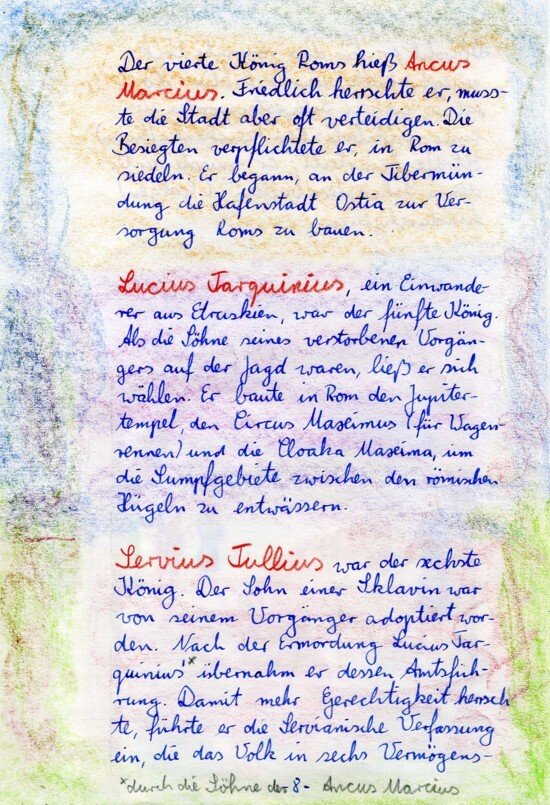 Der vierte König Roms hieß Ancus
Marcius. Friedlich herrschte er, muss-
te die Stadt aber oft verteidigen. Die
Besiegten verpflichtete er, in Rom zu
siedeln. Er begann, an der Tibermün-
dung die Hafenstadt Ostia zur Ver-
sorgung Roms zu bauen.
Lucius Tarquinius, ein Einwande-
rer aus Etruskien, war der fünfte König.
Als die Söhne seines verstorbenen Vorgän-
gers auf der Jagd waren, ließ er sich
wählen. Er baute in Rom den Jupiter-
tempel, den Circus Maximus (für Wagen-
rennen) und die Cloaka Maxima, um
die Sumpfgebiete zwischen den römischen
Hügeln zu entwässern.
Servius Tullius war der sechste
König. Der Sohn einer Sklavin war
von seinem Vorgänger adoptiert wor-
den. Nach der Ermordung Lucius Tar-
quinius'* übernahm er dessen Amtsfüh-
rung. Damit mehr Gerechtigkeit herrsch
te, führte er die Servianische Verfassung
ein, die das Volk in sechs Vermögens-
*durch die Söhne des Ancus Marcius
- 8 -